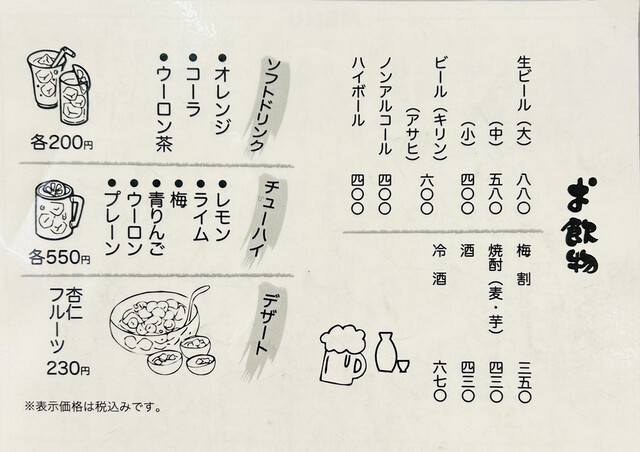 お飲物
生ビール（大） 八八〇
（中） 五八〇
（小） 四〇〇
ビール（キリン） 六〇〇
（アサヒ）
ノンアルコール 四〇〇
ハイボール 四〇〇
梅割 三五〇
焼酎（麦・芋） 四三〇
酒 四三〇
冷酒 六七〇
ソフトドリンク
●オレンジ
●コーラ
●ウーロン茶
各200円
チューハイ
●レモン
●ライム
●梅
●青りんご
●ウーロン
●プレーン
各550円
デザート
杏仁
フルーツ
230円
※表示価格は税込みです。